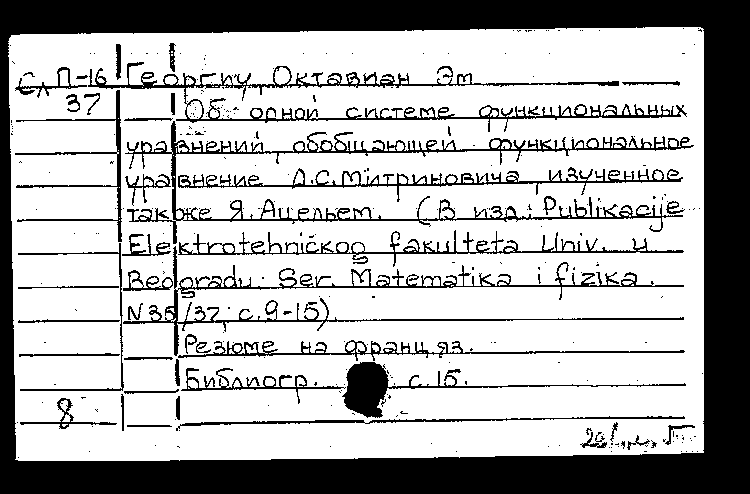 Сл П-16 Георгиу, Октавиан Эм
37 Об одной системе функциональных
уравнений, обобщающей функциональное
уравнение Д.С.Митриновича, изученное
также Я.Ацельем. (В изд.: Publikacije
Elektrotehničkog fakulteta Univ. u
Beogradu. Ser. Matematika i fizika.
N35/37, с.9-15).
Резюме на франц. яз.
Библиогр. с.15.
8